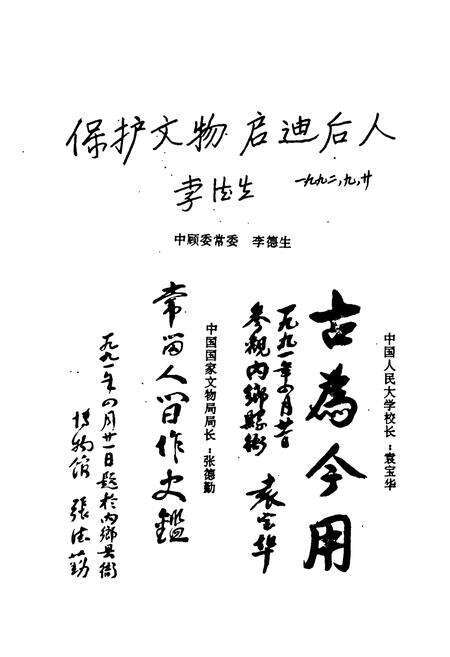 保护文物 启迪后人
李德生 一九九二，九，廿
中顾委常委 李德生
中国人民大学校长：袁宝华
古為今用
一九九一年四月廿日
参观内鄉縣衙
袁宝华
中国国家文物局局长：张德勤
常留人间作史鑑
一九九一年四月廿一日题於内鄉县衙
博物馆 張德勤